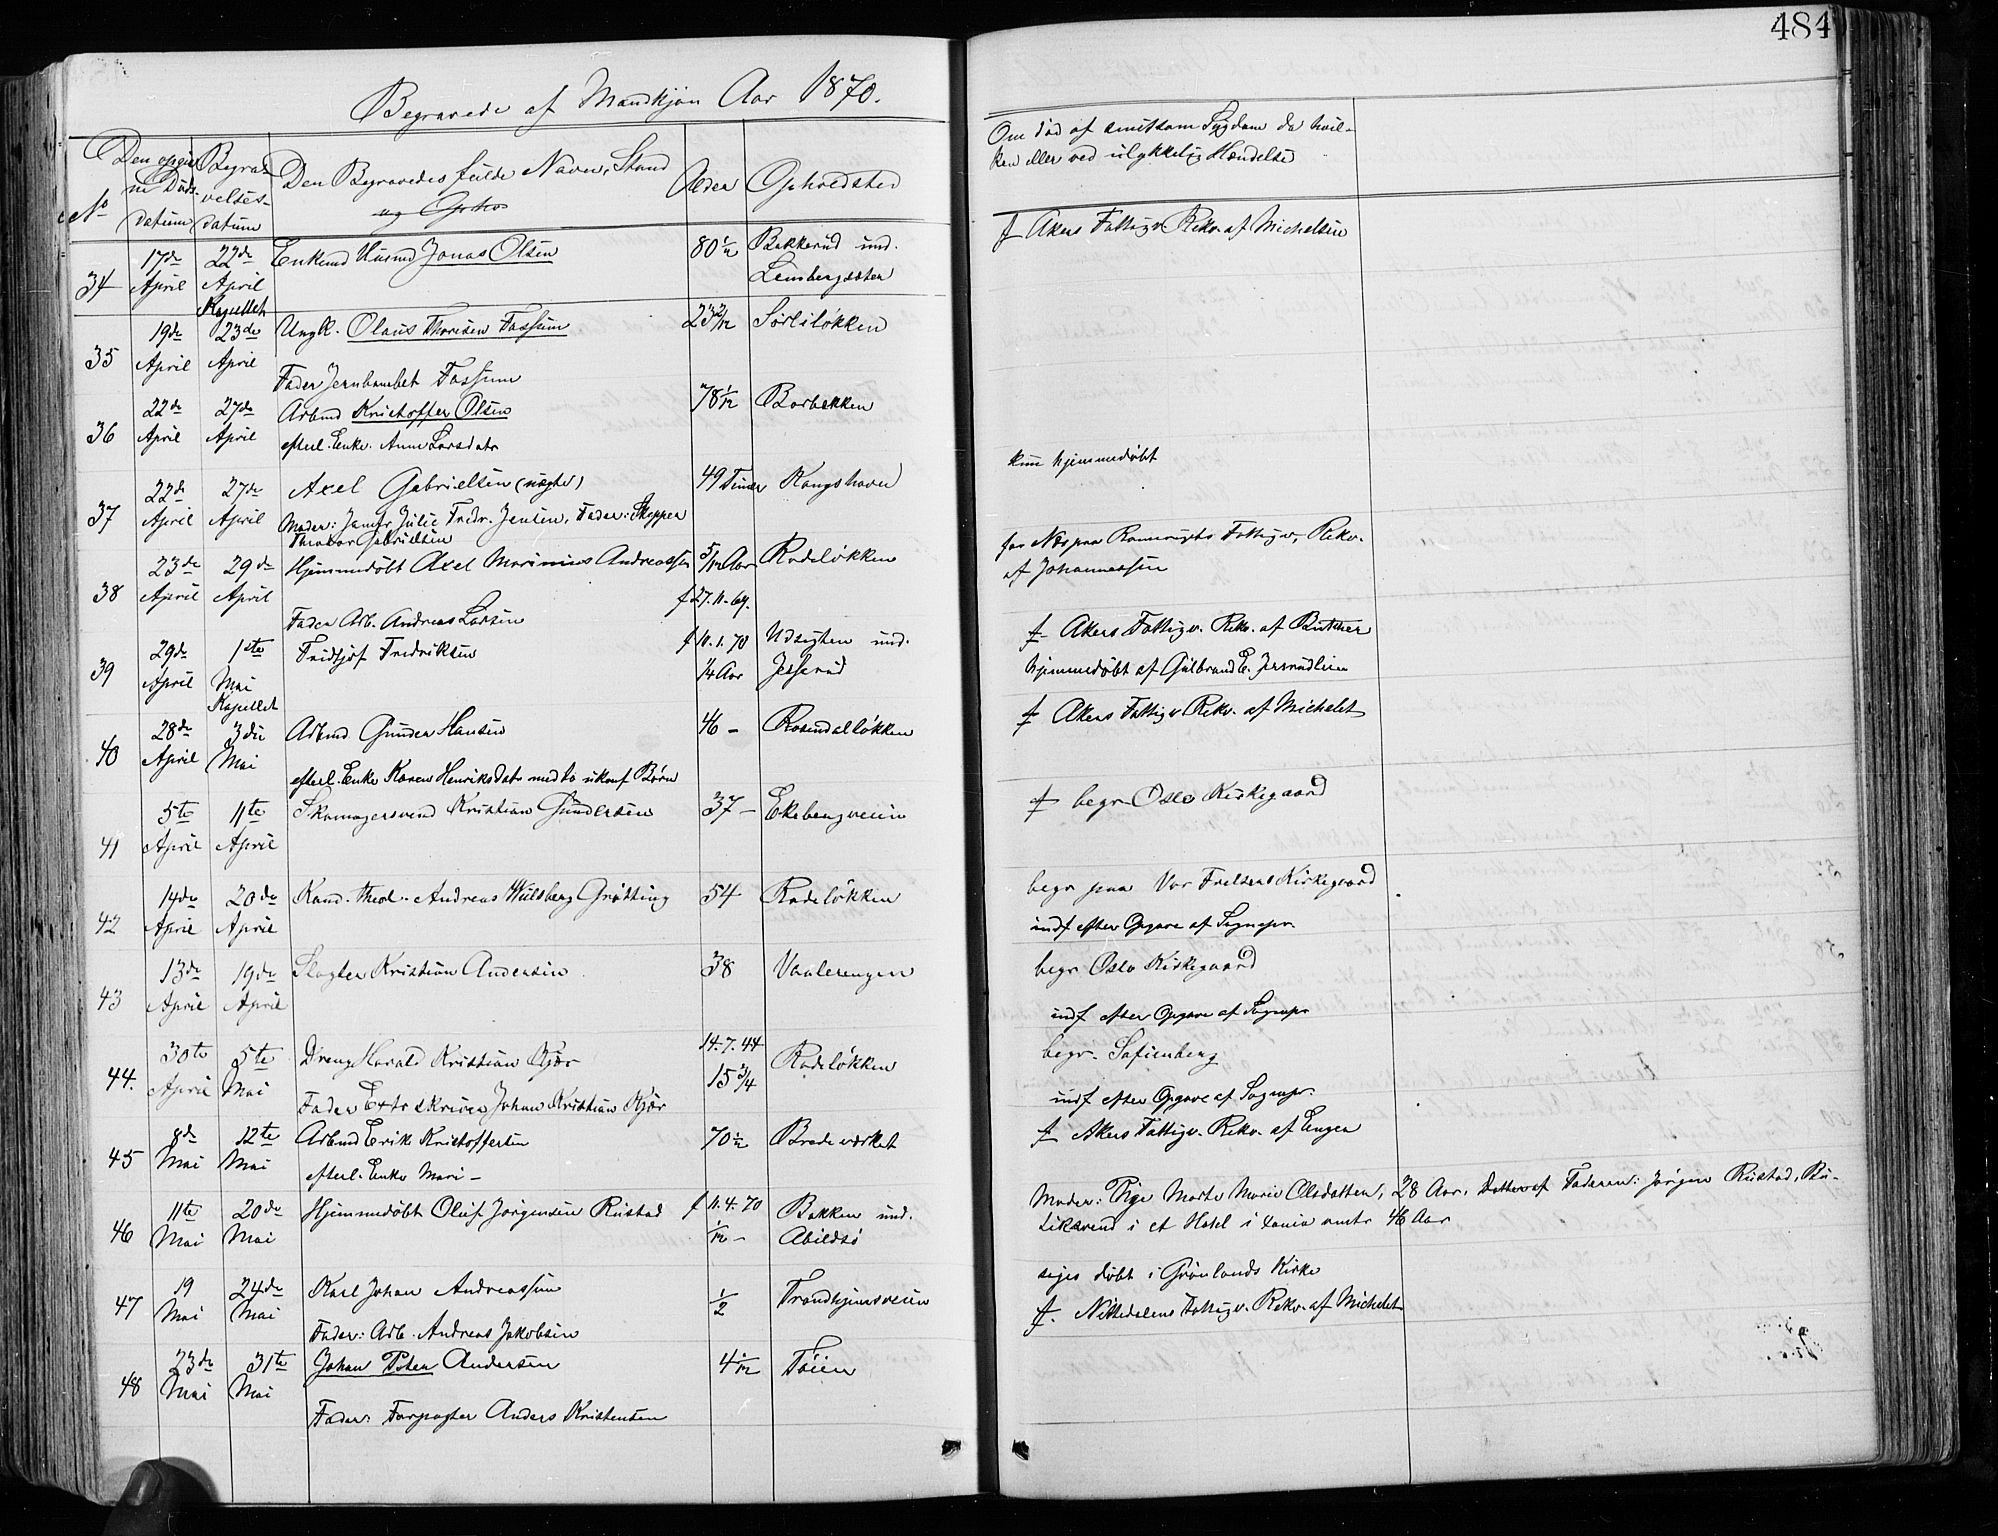 484
Begravede af Mandkjön Aar 1870.
No
Den opgivne Døds-datum
Begravelses-datum
Den Begravedes fulde Navn, Stand
og Opho
Alder
Opholdsted
Om død af smitsom Sygdom da hvil-
ken eller ved ulykkelig Hændelse
34 17de April 22de April Kapellet Enkemd Husmd Jonas Olsen 80 1/2 Bakkerud und.
f Akers Fattigv. Rekv. af Michelsen
35 19de April 23de April Ungk. Olaus Thorsen Fossum 23 2/12 Sörliløkken
Fader Jernbanebet Fossum
36 22de April 27de April Arbmd Kristoffer Olsen 78 1/12 Borbakken
efterl. Enke Anne Larsdatr
37 22de April 27de April Axel Gabrielsen (uægte) 49 Timer Kongshavn
Moder: Jomfr Julie Fredr. Jensen, Fader: Skipper
Gabrielsen
kun hjemmedøbt
38 23de April 29de April Hjemmedöbt Axel Marinius Andreassen 5/12 Aar Rodeløkken
f 27.11.69.
Fader Arb. Andreas Larsen
for Næs paa Romerigets Fattigv. Rekv.
af Johannessen
39 29de April 1ste Mai Kapellet Fridtjof Fredriksen f 10.1.70 Udsigten und.
1/4 Aar
f. Akers Fattigv. Rekv. af Butcher
hjemmedöbt af Gulbrand E.
40 28de April 3die Mai Arbmd Gunder Hansen 46 – Rosendalløkken
efterl. Enke Karen Henriksdatr med to ukonf Børn
f Akers Fattigv Rekv. af Michelet
41 5te April 11te April Skomagersvend Kristian Gundersen 37 – Ekebergveien
f begr. Oslo Kirkegaard
42 14de April 20de April Kand. theol. Andreas Wulsberg Grøtting 54 Rodeløkken
begr paa Vor Frelsers Kirkegaard
indf efter Opgave af Sognepr.
43 13de April 19de April Slagter Kristian Andersen 38 Vaalerengen
begr Oslo Kirkegaard
indf efter Opgave af Sognepr
44. 30te April 5te Mai Dreng Harald Kristian Kjær 14.7.44 Rodeløkken
15 3/4
Fader Extraskriver Johan Kristian Kjær
begr. Sofienberg
indf efter Opgave af Sognepr.
45 8de Mai 12te Mai Arbmd Erik Kristoffersen 70 1/2
efterl. Enke Mari –
f Akers Fattigv. Rekv. af Engen
46 11te Mai 20de Mai Hjemmedöbt Oluf Jørgensen Rustad f 11.4.70 Bakken und.
1/12 – Abildsö
Moder: Pige Marte Marie Olsdatter, 28 Aar, Datter af Faderen: Jörgen Rustad, Bu-
tiksvend i et Hotel i Xania omtr 46 Aar
47 19 Mai 24de Mai Karl Johan Andreassen 1/2 Trondhjemsveien
Fader: Arb. Andreas Jakobsen
siges døbt i Grønlands Kirke
f. Nittedalens Fattigv. Rekv. af Michelet
48 23de Mai 31te Mai Johan Peter Andersen 4 Töien
Fader: Forpagter Anders Kristensen